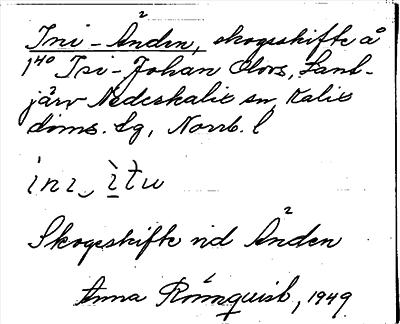 Ini-Ånden, skogsskifte å
1⁴⁰ Isi-Johan Olors, Land-
järv Nederkalix sn, Kalix
doms. lg, Norrb. l
Skogsskifte vid Ånden
Anna Rönnquist, 1949